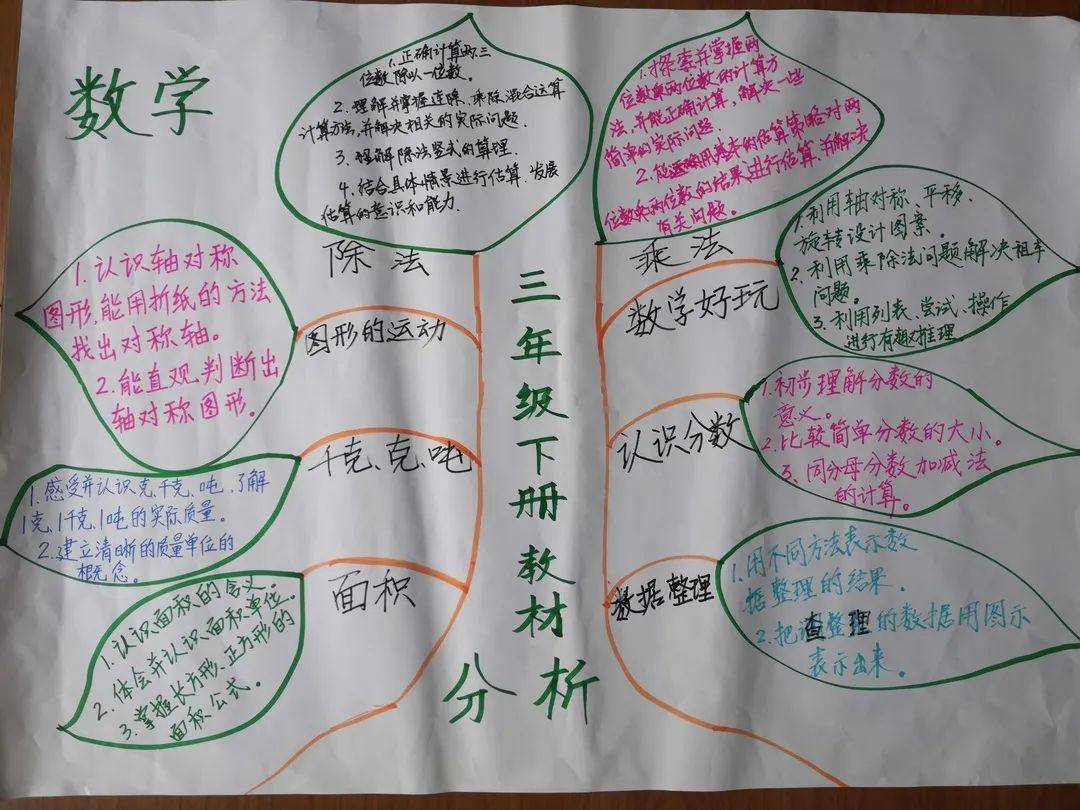 数学
三年级下册教材
分析
除法
1. 正确计算两、三
位数除以一位数。
2. 理解并掌握连除、乘除混合运算
计算方法,并解决相关的实际问题.
3. 理解除法竖式的算理.
4. 结合具体情景进行估算.发展
估算的意识和能力.
图形的运动
1. 认识轴对称
图形,能用折纸的方法
找出对称轴。
2. 能直观判断出
轴对称图形。
千克、克、吨
1. 感受并认识克、千克、吨,了解
1克、1千克、1吨的实际质量。
2. 建立清晰的质量单位的
概念。
面积
1. 认识面积的含义。
2. 体会并认识面积单位。
3. 掌握长方形、正方形的
面积公式。
乘法
1. 探索并掌握两
位数乘两位数的计算方
法,并能正确计算,解决一些
简单的实际问题.
2. 能运用基本的估算策略对两
位数乘两位数的结果进行估算,并解决
有关问题。
数学好玩
1. 利用轴对称、平移.
旋转设计图案。
2. 利用乘除法问题解决租车
问题。
3. 利用列表、尝试、操作
进行有趣推理。
认识分数
1. 初步理解分数的
意义。
2. 比较简单分数的大小。
3. 同分母分数加减法
的计算。
数据整理
1. 用不同方法表示数
据整理的结果。
2. 把调查整理的数据用图示
表示出来。